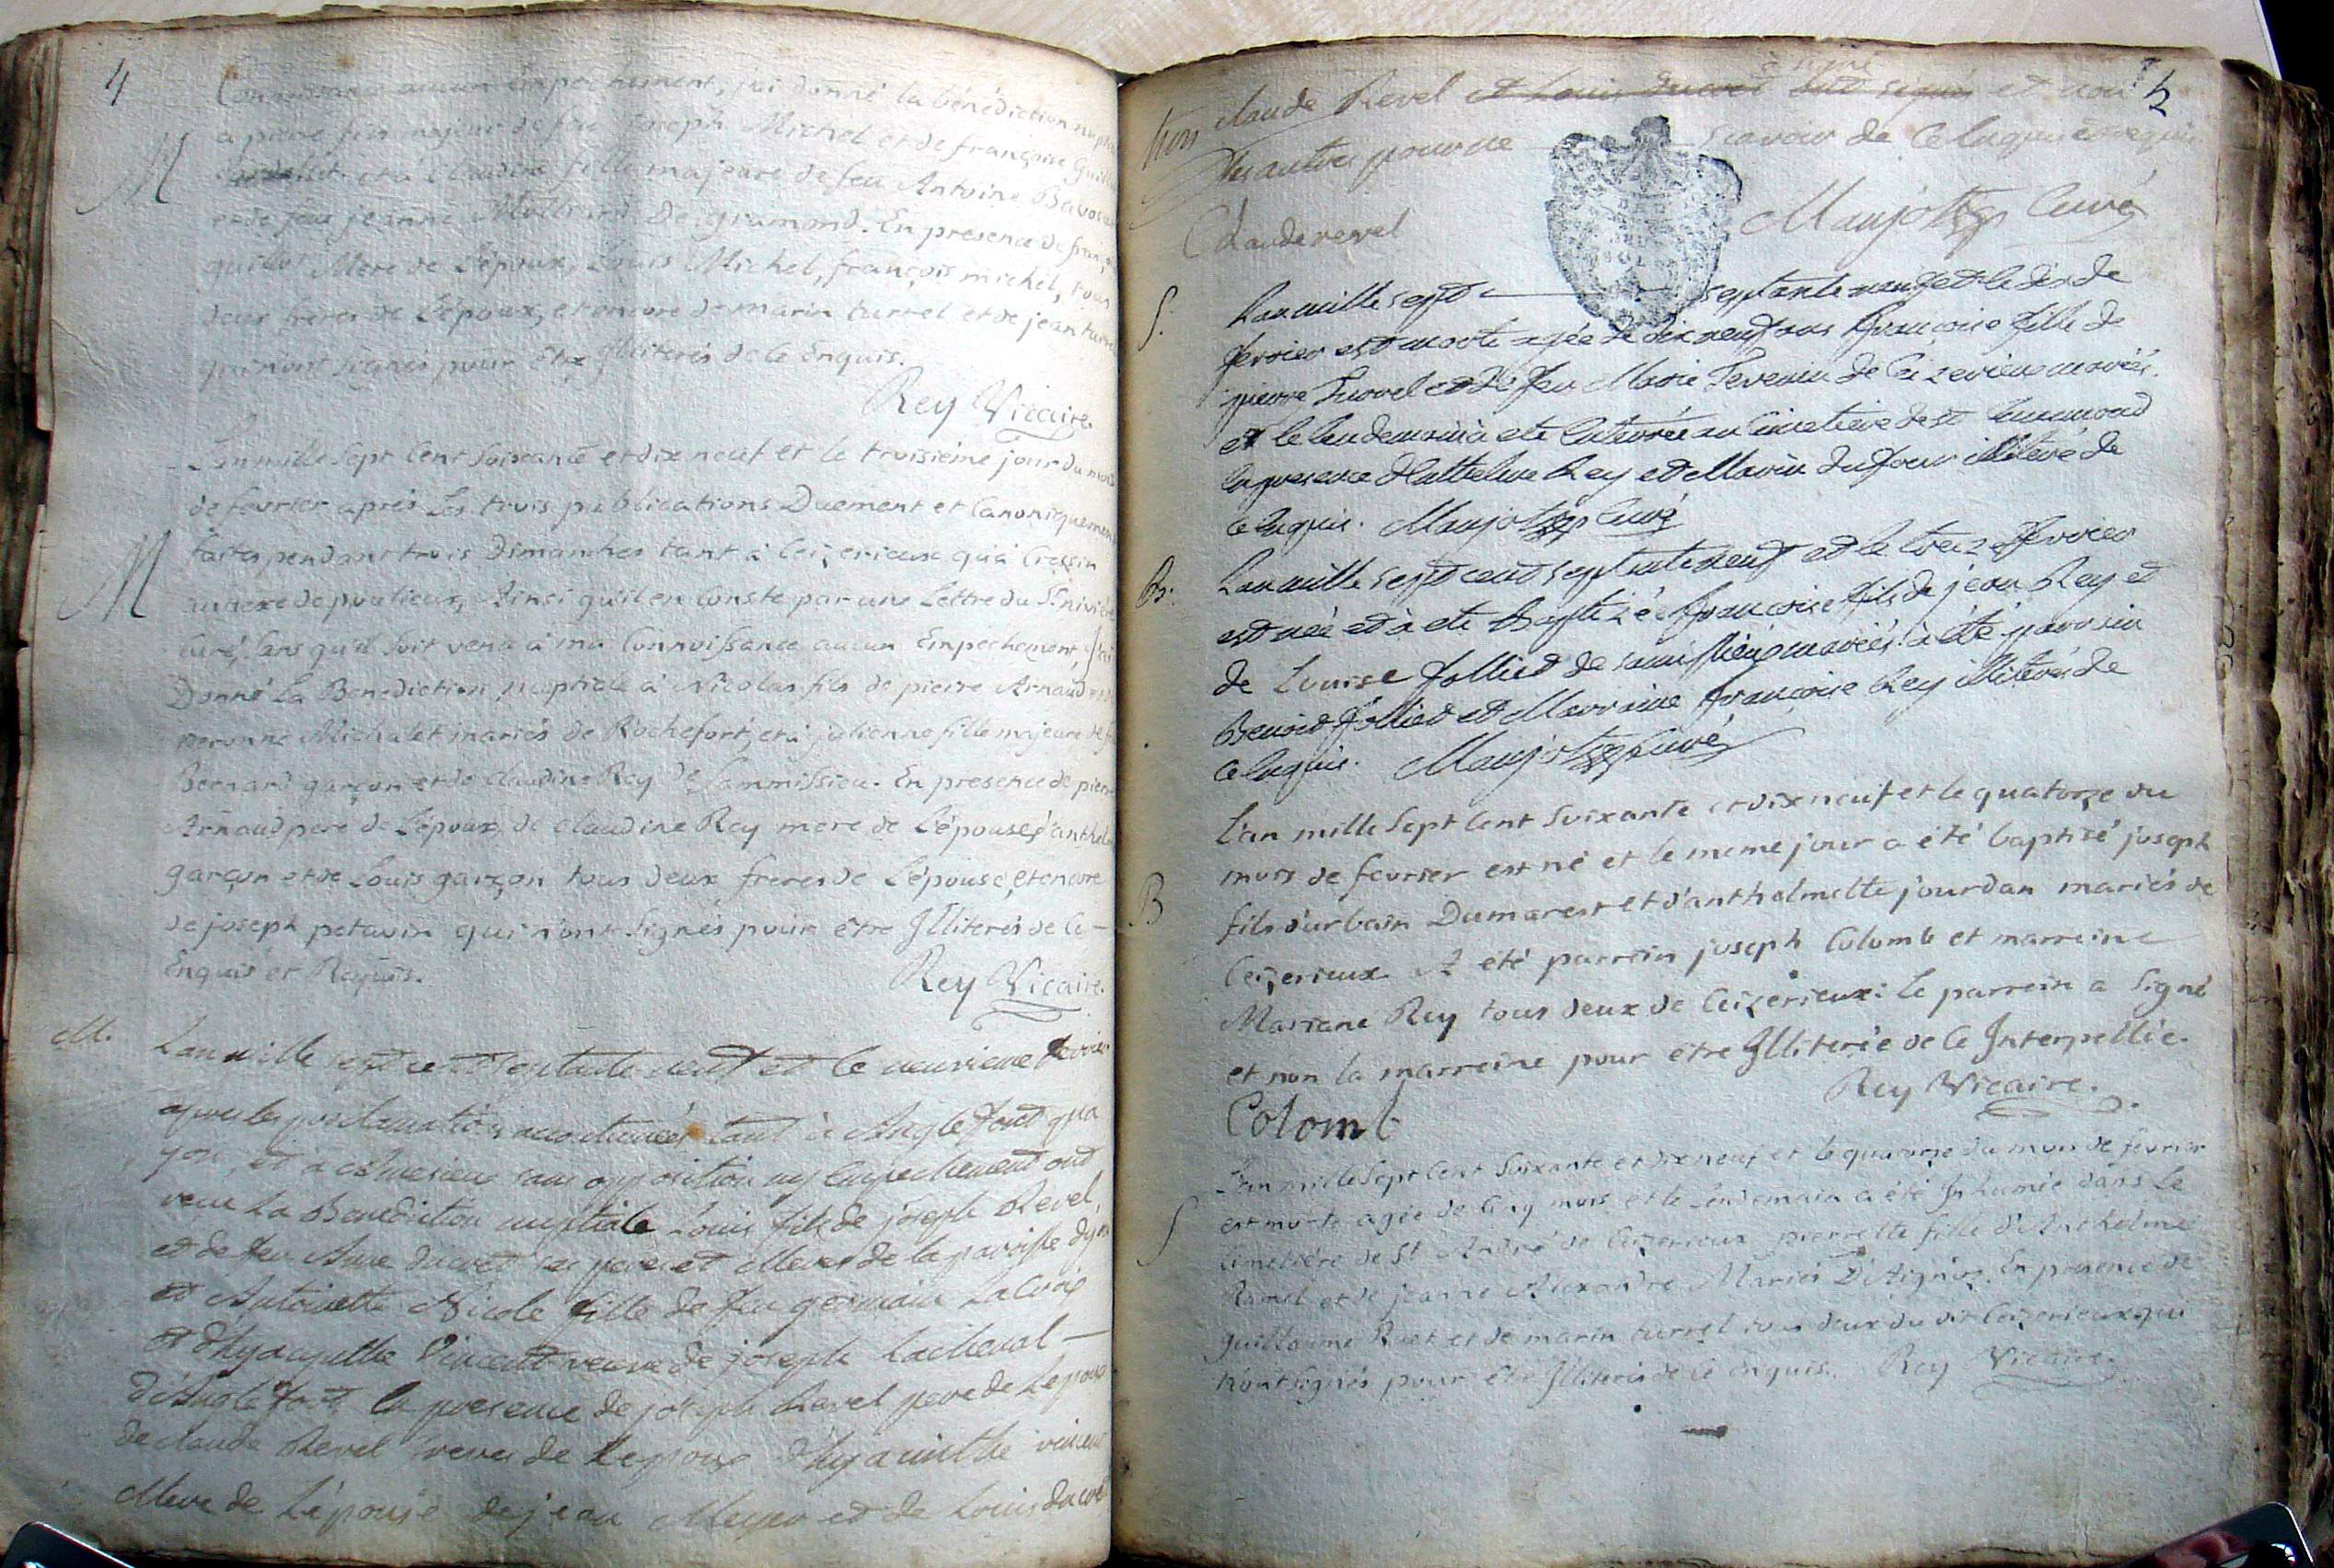 4
Connoissance aucun empechement, j'ai donné la bénédiction nuptiale
M
a pierre fils majeur de feu Joseph Michel et de françoise Guillot
et à Claudine fille majeure de feu Antoine
et de feue jeanne Mollard De gramond. En presence de
guillot Mere de L'époux, Louis Michel, françois michel, tous
deux freres de L'époux, et encore de marin turrel et de jean turrel
qui n'ont signés pour être Illiterés de ce Enquis.
Rey Vicaire.
L'an mille Sept Cent Soixante et dix neuf et le troisieme jour du mois
de fevrier après Les trois publications Duement et Canoniquement
M
faites pendant trois Dimanches tant à Ceizerieux qu'à Cressin
annexe de poulieux, Ainsi qu'il en Conste par une Lettre du Sr.
curé, Sans qu'il soit venu à ma Connoissance aucun Empechement, J'ai
Donné La Benediction nuptiale à Nicolas fils de pierre Arnaud
peronne Michalet mariés de Rochefort, et à julienne fille majeure de
Bernard garçon et de claudine Rey de Sammissieu. En presence de pierre
Arnaud pere de L'époux, de claudine Rey mere de L'épouse, d'
garçon et de Louis garçon tous deux freres de L'épouse, et encore
de joseph petavin qui n'ont signés pour être Illiterés de Ce
Enquis et Requis.
Rey Vicaire.
M.
Lan mille sept cent septante neuf et le neuvieme fevrier
apres les proclamations accoutumées tant à Anglefort qua
yon, et à sans opposition ny Empechement ont
recu La Benediction nuptiale Louis fils de joseph Revel,
et de feu Anne ducret ses pere et Mere de la paroisse
et Antoinette Nicole fille de feu germain La Croix
et d'hyacinthe Vincent veuve de joseph Lacheval
d'Anglefort En presence de joseph Revel pere de Lepoux
de claude Revel frere de Lepoux d'hyacinthe vincent
Mere de L'épouse de jean et de Louis ducret
claude Revel et Louis ducret ont signés à signé et non
les autres pour ne scavoir de Ce Enquis et requis
Claude revel
Maujot Curé
S.
Lan mille sept septante neuf et le dix de
fevrier est morte agée de dix neuf ans françoise fille de
pierre Turrel et de feu Marie Tevenin de Ceizerieux mariés.
et le lendemain à eté Enterrée au Cimetiere de
En presence d'Anthelme Rey et Marin dufour illiteré de
ce Enquis. Maujot Curé
B.
Lan mille sept cent septante neuf et le treize fevrier
est née et à eté Baptizée françoise fille de jean Rey et
de Louise follied de mariés: à été parrain
Benoist follied et Marraine françoise Rey illiterés de
ce Enquis. Maujot Curé
L'an mille Sept Cent Soixante et dix neuf et le quatorze du
mois de fevrier est né et le meme jour a été baptisé joseph
B
fils d'urbain Dumarest et d'anthelmette jourdan mariés de
Ceizerieux. A été parrein joseph Colomb et marreine
Mariane Rey tous deux de Ceizerieux: le parrein a Signé
et non la marreine pour être Illiterée de Ce Interpellée.
Rey Vicaire.
Colomb
L'an mille Sept Cent Soixante et dix neuf et le quatorze du mois de fevrier
S
est morte agée de Cinq mois et le Lendemain a été Inhumée dans Le
Cimetière de St André de Ceizerieux pierrette fille d'Anthelme
Ramel et de jeanne Alexandre Mariés D'Aignoz. En presence de
guillaume Ruet et de marin turrel tous deux du dit Ceizerieux qui
n'ont signés pour être Illiterés de Ce Enquis. Rey Vicaire.